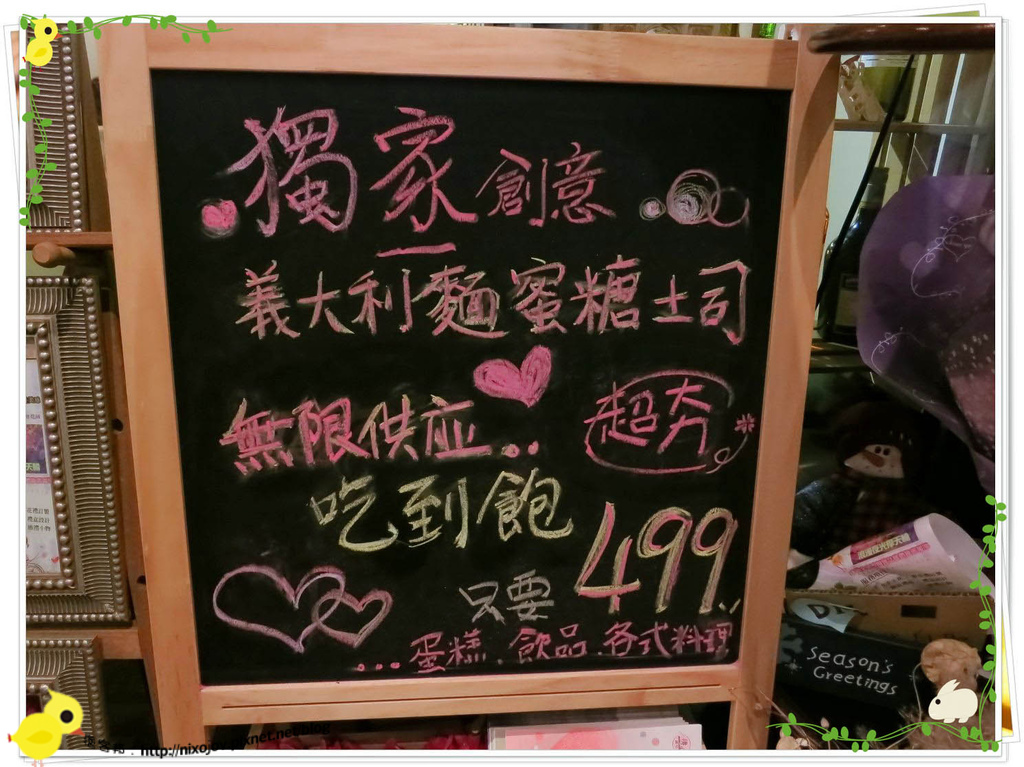 獨家創意
義大利麵蜜糖土司
無限供应..
超夯
吃到飽
只要499..
...蛋糕.飲品.各式料理
Season's
Greetings